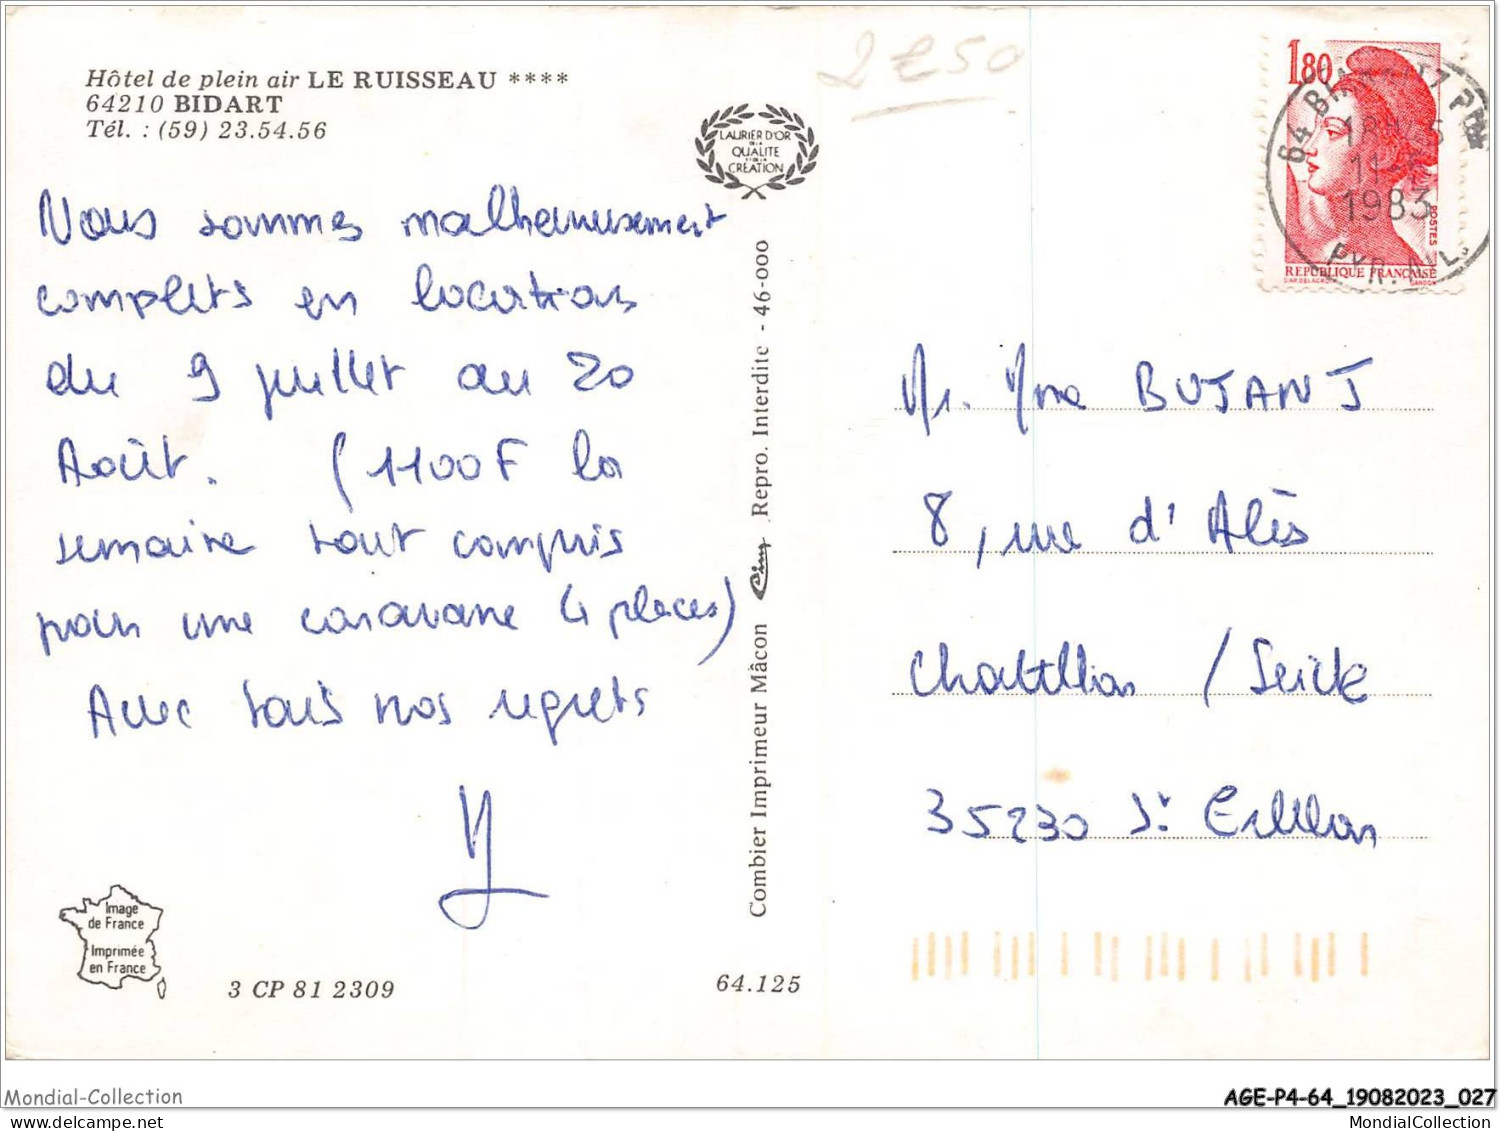 Hôtel de plein air LE RUISSEAU ****
64210 BIDART
Tél. : (59) 23.54.56
Nous sommes malheureusement
complets en locations
du 9 juillet au 20
Août. (1100F la
semaine tout compris
pour une caravane 4 places)
Avec tous nos regrets
Image
de France
Imprimée
en France
3 CP 81 2309
64.125
LAURIER D'OR
DE LA
QUALITE
ET DE LA
CREATION
Combier Imprimeur Mâcon Cim Repro. Interdite - 46-000
2 £ 50
1,80
RÉPUBLIQUE FRANÇAISE
POSTES
1983
Mr. Mme BUJANT
8, rue d'Alès
Chatillon / Seiche
35230 St Erblon
Mondial-Collection
AGE-P4-64_19082023_027
MondialCollection